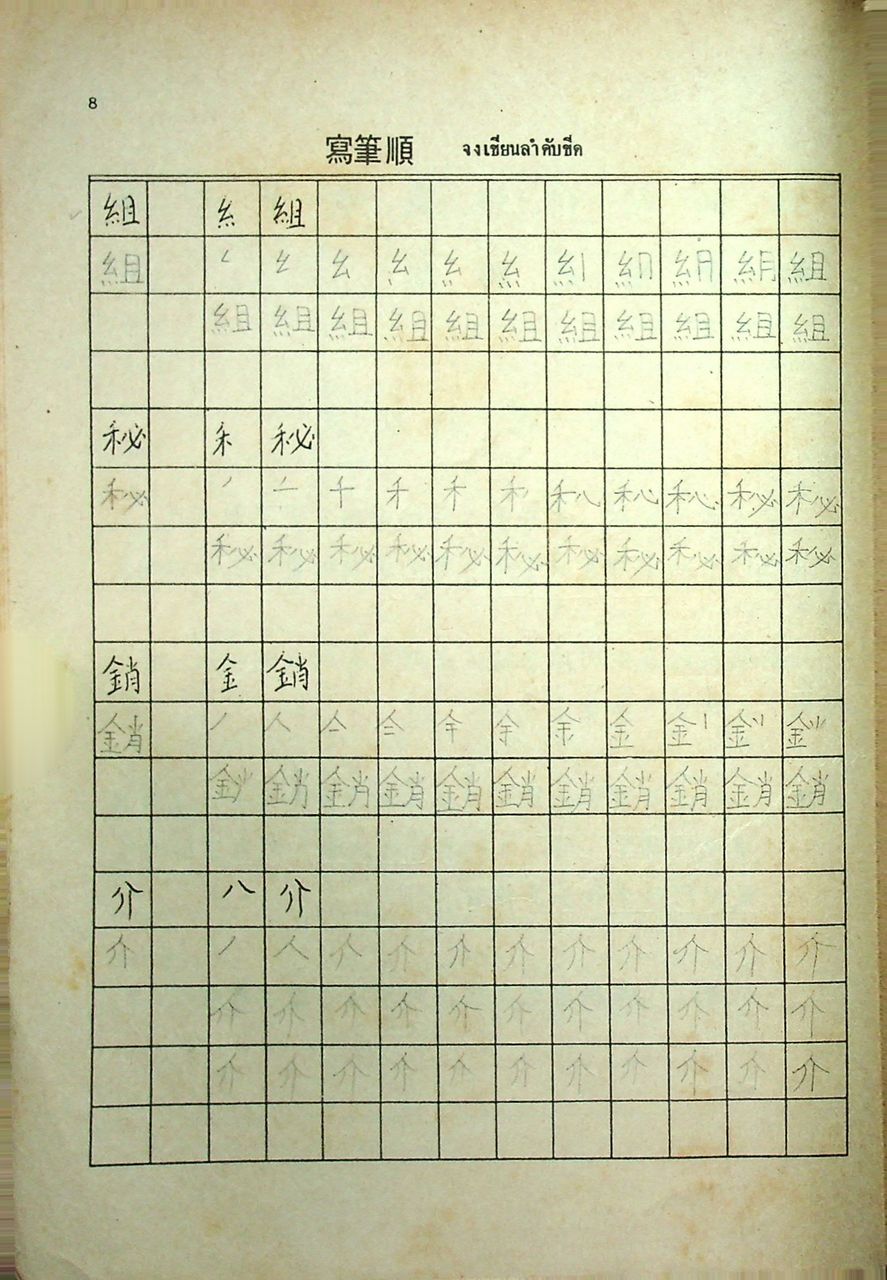 8
寫筆順 จงเขียนลำดับขีด
組 糹 組
組 𠃋 幺 糹 組
組 組 組 組 組 組 組 組 組 組 組
秘 禾 秘
秘 丿 二 千 禾 禾 秘 秘
秘 秘 秘 秘 秘 秘 秘 秘 秘 秘 秘
銷 金 銷
銷 丿 人 亼 金 金 金
銷 銷 銷 銷 銷 銷 銷 銷 銷 銷
介 八 介
介 丿 人 介 介 介 介 介 介 介 介
介 介 介 介 介 介 介 介 介 介 介
介 介 介 介 介 介 介 介 介 介 介